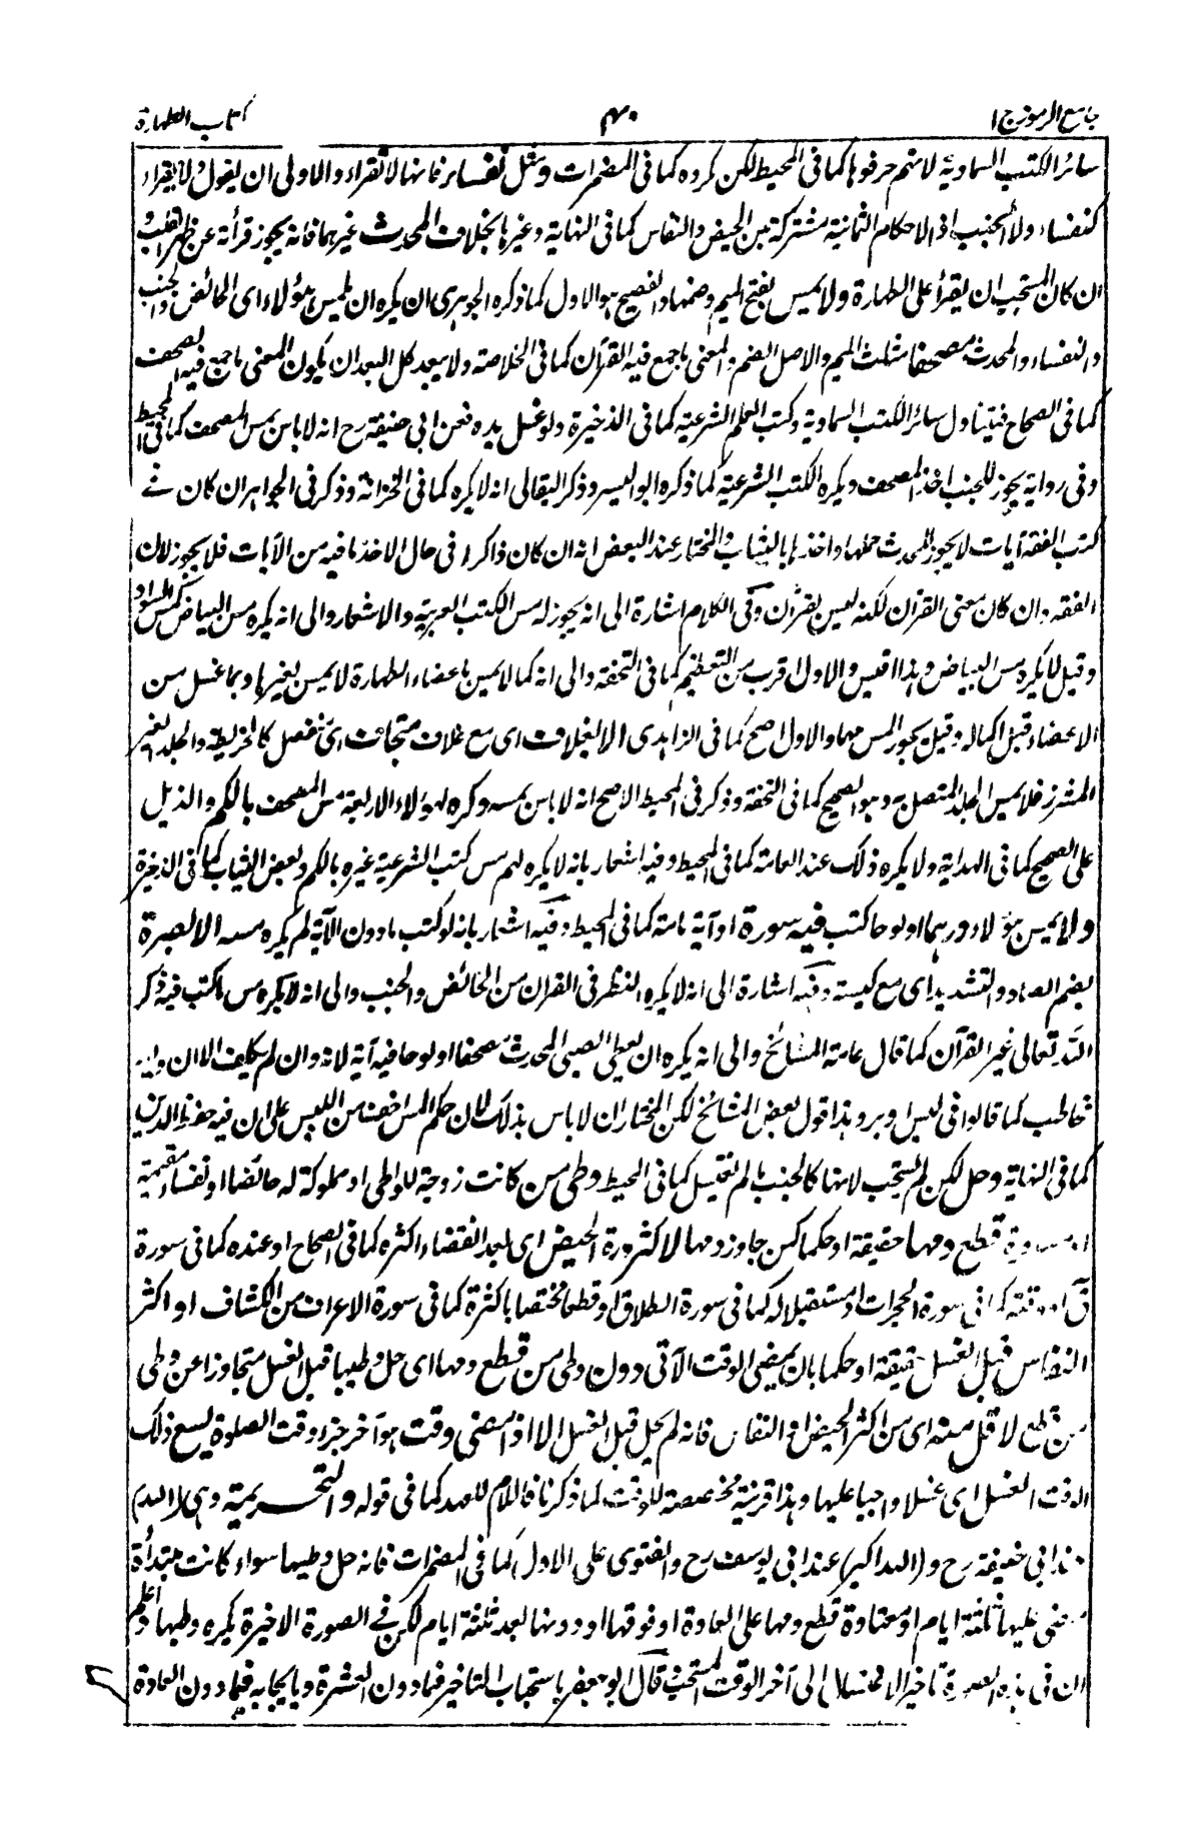 جامع الرموز ج ١
٤٠
كتاب الطهارة
سائر الكتب السماوية لانهم حرفوها كما فى المحيط لكن كره كما فى المضمرات ومثل نفساء فانها لا تقراء والاولى ان يقول ولا يقراء
كنفساء ولا الجنب اذ الاحكام الثمانية مشتركة بين الحيض والنفاس كما فى النهاية وغيرها بخلاف المحدث غيرهما فانه يجوز قرأته عن ظهر القلب
ان كان المستحب ان يقرأ على الطهارة ولا يمس بفتح الميم وضمها والفصيح هو الاول كما ذكره الجوهرى ان يكره ان يلمس هؤلاء اى الحائض والجنب
والنفساء والمحدث مصحفا مثلث الميم والاصل الضم والمعنى ما جمع فيه القرآن كما فى الخلاصة ولا يبعد كل البعد ان يكون المعنى ما جمع فيه الصحف
كما فى الصحاح فيتناول سائر الكتب السماوية وكتب العلم الشرعية كما فى الذخيرة ولو غسل يده فعن ابى حنيفة رح انه لا باس بمس المصحف كما فى المحيط
وفى رواية يجوز للجنب اخذ المصحف ويكره الكتب الشرعية كما ذكره ابو اليسر وذكر البقالى انه لا يكره كما فى الخزانة وذكر فى الجواهر ان كان فى
كتب الفقه آيات لا يجوز للمحدث حملها واخذها بالثياب والمختار عند البعض انه ان كان ذاكرا فى حال الاخذ ما فيه من الآيات فلا يجوز لان
الفقه وان كان معنى القرآن لكنه ليس بقرآن وفى الكلام اشارة الى انه يجوز له مس الكتب العربية والاشعار والى انه يكره مس البياض كمس السواد
وقيل لا يكره مس البياض وهذا اقيس والاول اقرب من التعظيم كما فى التحفة والى انه كما لا يمس باعضاء الطهارة لا يمس بغيرها وبما غسل من
الاعضاء قبل اكماله وقيل يجوز المس بهما والاول اصح كما فى الزاهدى الا بغلاف اى مع غلاف متجاف اى منفصل كالخريطة والجلد الغير
المشرز فلا يمس الجلد المتصل به وهو الصحيح كما فى التحفة وذكر فى المحيط الاصح انه لا باس بمسه وكره لهؤلاء الاربعة مس المصحف بالكم والذيل
على الصحيح كما فى الهداية ولا يكره ذلك عند العامة كما فى المحيط وفيه اشعار بانه لا يكره لهم مس كتب الشرعية غيره بالكم وبعض الثياب كما فى الذخيرة
ولا يمس هؤلاء درهما او لوحا كتب فيه سورة او آية تامة كما فى المحيط وفيه اشعار بانه لو كتب ما دون الآية لم يكره مسه الا بصرة
بضم الصاد والتشديد اى مع كيسته وفيه اشارة الى انه لا يكره النظر فى القران من الحائض والجنب والى انه لا يكره مس ما كتب فيه ذكر
الله تعالى غير القرآن كما قال عامة المشائخ والى انه يكره ان يعطى الصبى المحدث مصحفا او لوحا فيه آية لانه وان لم يكلف الا ان وليه
خاطب كما قالوا فى لبس وهذا قول بعض المشائخ لكن المختار ان لا باس بذلك لان فيه حفظ الدين
كما فى النهاية وحل لكن لم يستحب لانها كالجنب ما لم تغتسل كما فى المحيط وطى من كانت زوجة للواطى او مملوكة له حائضا او نفساء
قطع دمها حقيقة او حكما كمن جاوز دمها لاكثر مدة الحيض اى بعد انقضاء اكثره كما فى الصحاح او عنده كما فى سورة
ق او وقته كما فى سورة الحجرات او مستقبلا له كما فى سورة الطلاق او قطعا مختصا باكثره كما فى سورة الاعراف من الكشاف او اكثر
النفاس قبل الغسل حقيقة او حكما بان يمضى الوقت الآتى دون وطى من قطع دمها اى حل وطيها قبل الغسل متجاوزا عن وطى
من قطع لاقل منه اى من اكثر الحيض او النفاس فانه لم يحل قبل الغسل الا اذا مضى وقت هو آخر جزء وقت الصلوة يسع ذلك
الوقت الغسل اى غسلا واجبا عليها وهذا قرينة مخصصة للوقت كما ذكرنا فاللام للعهد كما فى قوله والتحريمة وهى (الله)
عند ابى حنيفة رح و (الله اكبر) عند ابى يوسف رح والفتوى على الاول كما فى المضمرات فانه حل وطيها سواء كانت مبتدأة
مضى عليها ثلثة ايام او معتادة قطع دمها على العادة او فوقها او دونها بعد ثلثة ايام لكن فى الصورة الاخيرة يكره وطيها واعلم
ان فى هذه الصورة تاخير الاغتسال الى آخر الوقت المستحب قال ابو جعفر باستحباب التاخير فيما دون العشرة وبايجابه فيما دون العادة